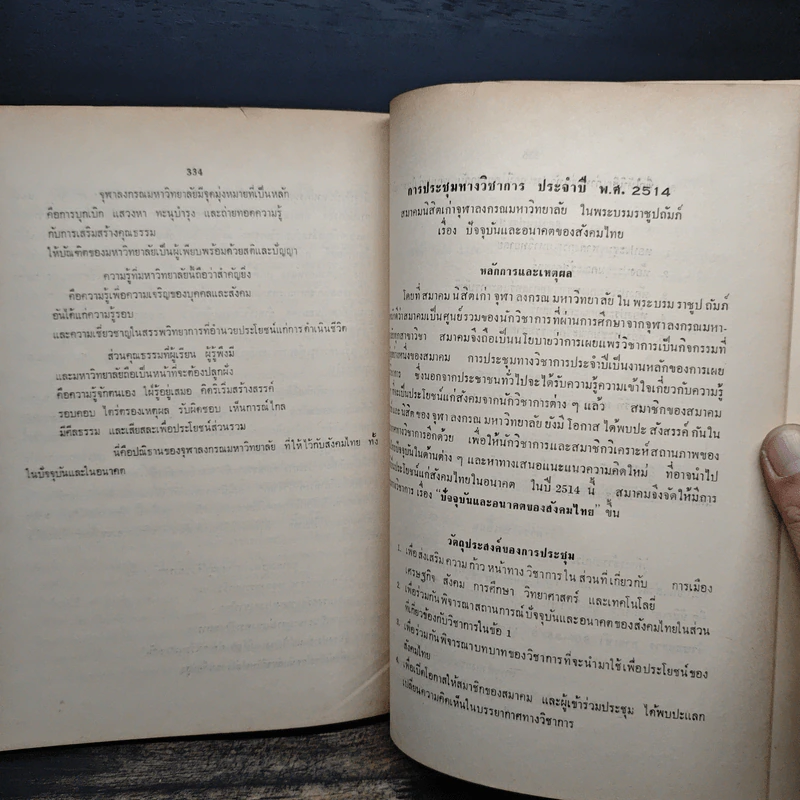 334
จุฬาลงกรณมหาวิทยาลัยมีจุดมุ่งหมายที่เป็นหลัก
คือการบุกเบิก แสวงหา ทะนุบำรุง และถ่ายทอดความรู้
กับการเสริมสร้างคุณธรรม
ให้บัณฑิตของมหาวิทยาลัยเป็นผู้เพียบพร้อมด้วยสติและปัญญา
ความรู้ที่มหาวิทยาลัยนี้ถือว่าสำคัญยิ่ง
คือความรู้เพื่อความเจริญของบุคคลและสังคม
อันได้แก่ความรู้รอบ
และความเชี่ยวชาญในสรรพวิทยาการที่อำนวยประโยชน์แก่การดำเนินชีวิต
ส่วนคุณธรรมที่ผู้เรียน ผู้รู้พึงมี
และมหาวิทยาลัยถือเป็นหน้าที่จะต้องปลูกฝัง
คือความรู้จักตนเอง ใฝ่รู้อยู่เสมอ คิดริเริ่มสร้างสรรค์
รอบคอบ ไตร่ตรองเหตุผล รับผิดชอบ เห็นการณ์ไกล
มีศีลธรรม และเสียสละเพื่อประโยชน์ส่วนรวม
นี่คือปณิธานของจุฬาลงกรณมหาวิทยาลัย ที่ให้ไว้กับสังคมไทย ทั้ง
ในปัจจุบันและในอนาคต
การประชุมทางวิชาการ ประจำปี พ.ศ. 2514
สมาคมนิสิตเก่าจุฬาลงกรณมหาวิทยาลัย ในพระบรมราชูปถัมภ์
เรื่อง ปัจจุบันและอนาคตของสังคมไทย
หลักการและเหตุผล
โดยที่สมาคมนิสิตเก่าจุฬาลงกรณมหาวิทยาลัย ในพระบรมราชูปถัมภ์
สมาคมเป็นศูนย์รวมของนักวิชาการที่ผ่านการศึกษาจากจุฬาลงกรณมหา-
สมาคมจึงถือเป็นนโยบายว่าการเผยแพร่วิชาการเป็นกิจกรรมที่
ของสมาคม การประชุมทางวิชาการประจำปีเป็นงานหลักของการเผย
ซึ่งนอกจากประชาชนทั่วไปจะได้รับความรู้ความเข้าใจเกี่ยวกับความรู้
เป็นประโยชน์แก่สังคมจากนักวิชาการต่าง ๆ แล้ว สมาชิกของสมาคม
และนิสิตของจุฬาลงกรณมหาวิทยาลัย ยังมีโอกาสได้พบปะสังสรรค์กันใน
ทางวิชาการอีกด้วย เพื่อให้นักวิชาการและสมาชิกวิเคราะห์สถานภาพของ
ปัจจุบันในด้านต่าง ๆ และหาทางเสนอแนะแนวความคิดใหม่ ที่อาจนำไป
ประโยชน์แก่สังคมไทยในอนาคต ในปี 2514 นี้ สมาคมจึงจัดให้มีการ
วิชาการ เรื่อง "ปัจจุบันและอนาคตของสังคมไทย" ขึ้น
วัตถุประสงค์ของการประชุม
1. เพื่อส่งเสริมความก้าวหน้าทางวิชาการในส่วนที่เกี่ยวกับ การเมือง
เศรษฐกิจ สังคม การศึกษา วิทยาศาสตร์ และเทคโนโลยี
2. เพื่อร่วมกันพิจารณาสถานการณ์ปัจจุบันและอนาคตของสังคมไทยในส่วน
ที่เกี่ยวข้องกับวิชาการในข้อ 1
3. เพื่อร่วมกันพิจารณาบทบาทของวิชาการที่จะนำมาใช้เพื่อประโยชน์ของ
สังคมไทย
4. เพื่อเปิดโอกาสให้สมาชิกของสมาคม และผู้เข้าร่วมประชุม ได้พบปะแลก
เปลี่ยนความคิดเห็นในบรรยากาศทางวิชาการ